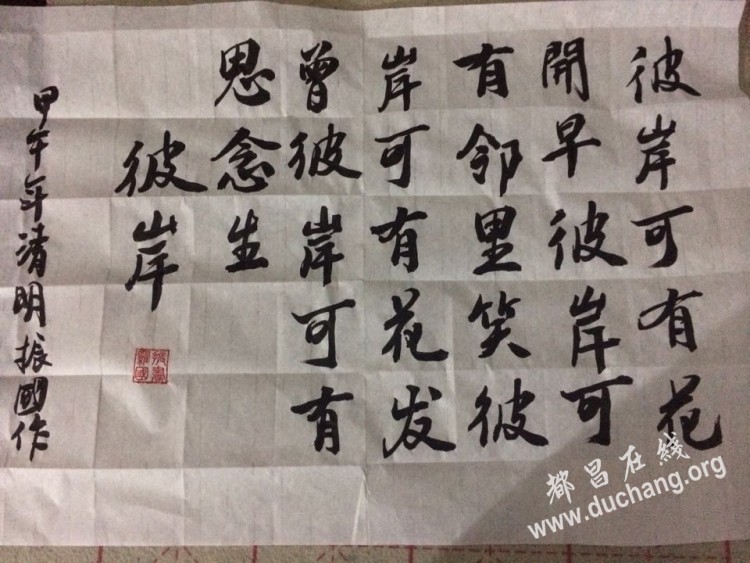 彼岸可有花
開早彼岸可
有邻里笑彼
岸可有花发
曾彼岸可有
思念生
彼岸
甲午年清明振國作
都昌在线
www.duchang.org